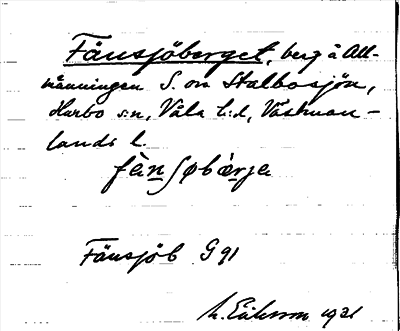 Fänsjöberget, berg å All-
männingen S. om Stalbosjön,
Harbo s:n, Våla t:d, Västman-
lands l.
fä̀nʃøbæ̀rjə
Fänsjöb G 91
M. Eriksson 1921